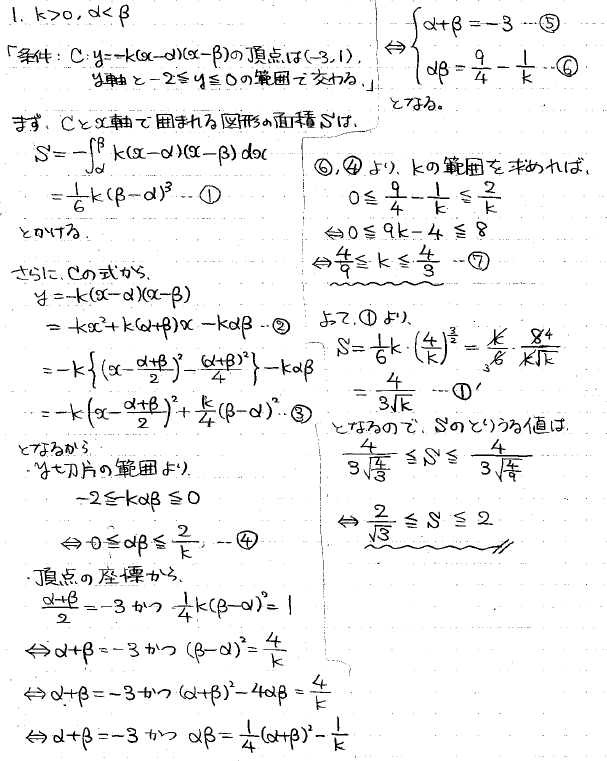 1. k>0, α<β
「条件: C: y=-k(x-α)(x-β)の頂点は(-3,1),
y軸と-2≦y≦0の範囲で交わる.」
まず, Cとx軸で囲まれる図形の面積Sは,
S=-∫_α^β k(x-α)(x-β)dx
=1/6 k(β-α)³ …①
とかける.
さらに, Cの式から,
y=-k(x-α)(x-β)
=-kx²+k(α+β)x-kαβ …②
=-k{(x-(α+β)/2)²-(α+β)²/4}-kαβ
=-k(x-(α+β)/2)²+k/4(β-α)² …③
となるから
・y切片の範囲より
-2≦-kαβ≦0
⇔0≦αβ≦2/k …④
・頂点の座標から,
(α+β)/2=-3かつ 1/4 k(β-α)²=1
⇔α+β=-3かつ (β-α)²=4/k
⇔α+β=-3かつ (α+β)²-4αβ=4/k
⇔α+β=-3かつ αβ=1/4(α+β)²-1/k
⇔{α+β=-3 …⑤
αβ=9/4-1/k …⑥
となる。
⑥,④より, kの範囲を求めれば,
0≦9/4-1/k≦2/k
⇔0≦9k-4≦8
⇔4/9≦k≦4/3 …⑦
よって,①より,
S=1/6 k・(4/k)^(3/2)=k/6・8/(k√k)
=4/(3√k) …①′
となるので, Sのとりうる値は
4/(3√(4/3))≦S≦4/(3√(4/9))
⇔2/√3≦S≦2